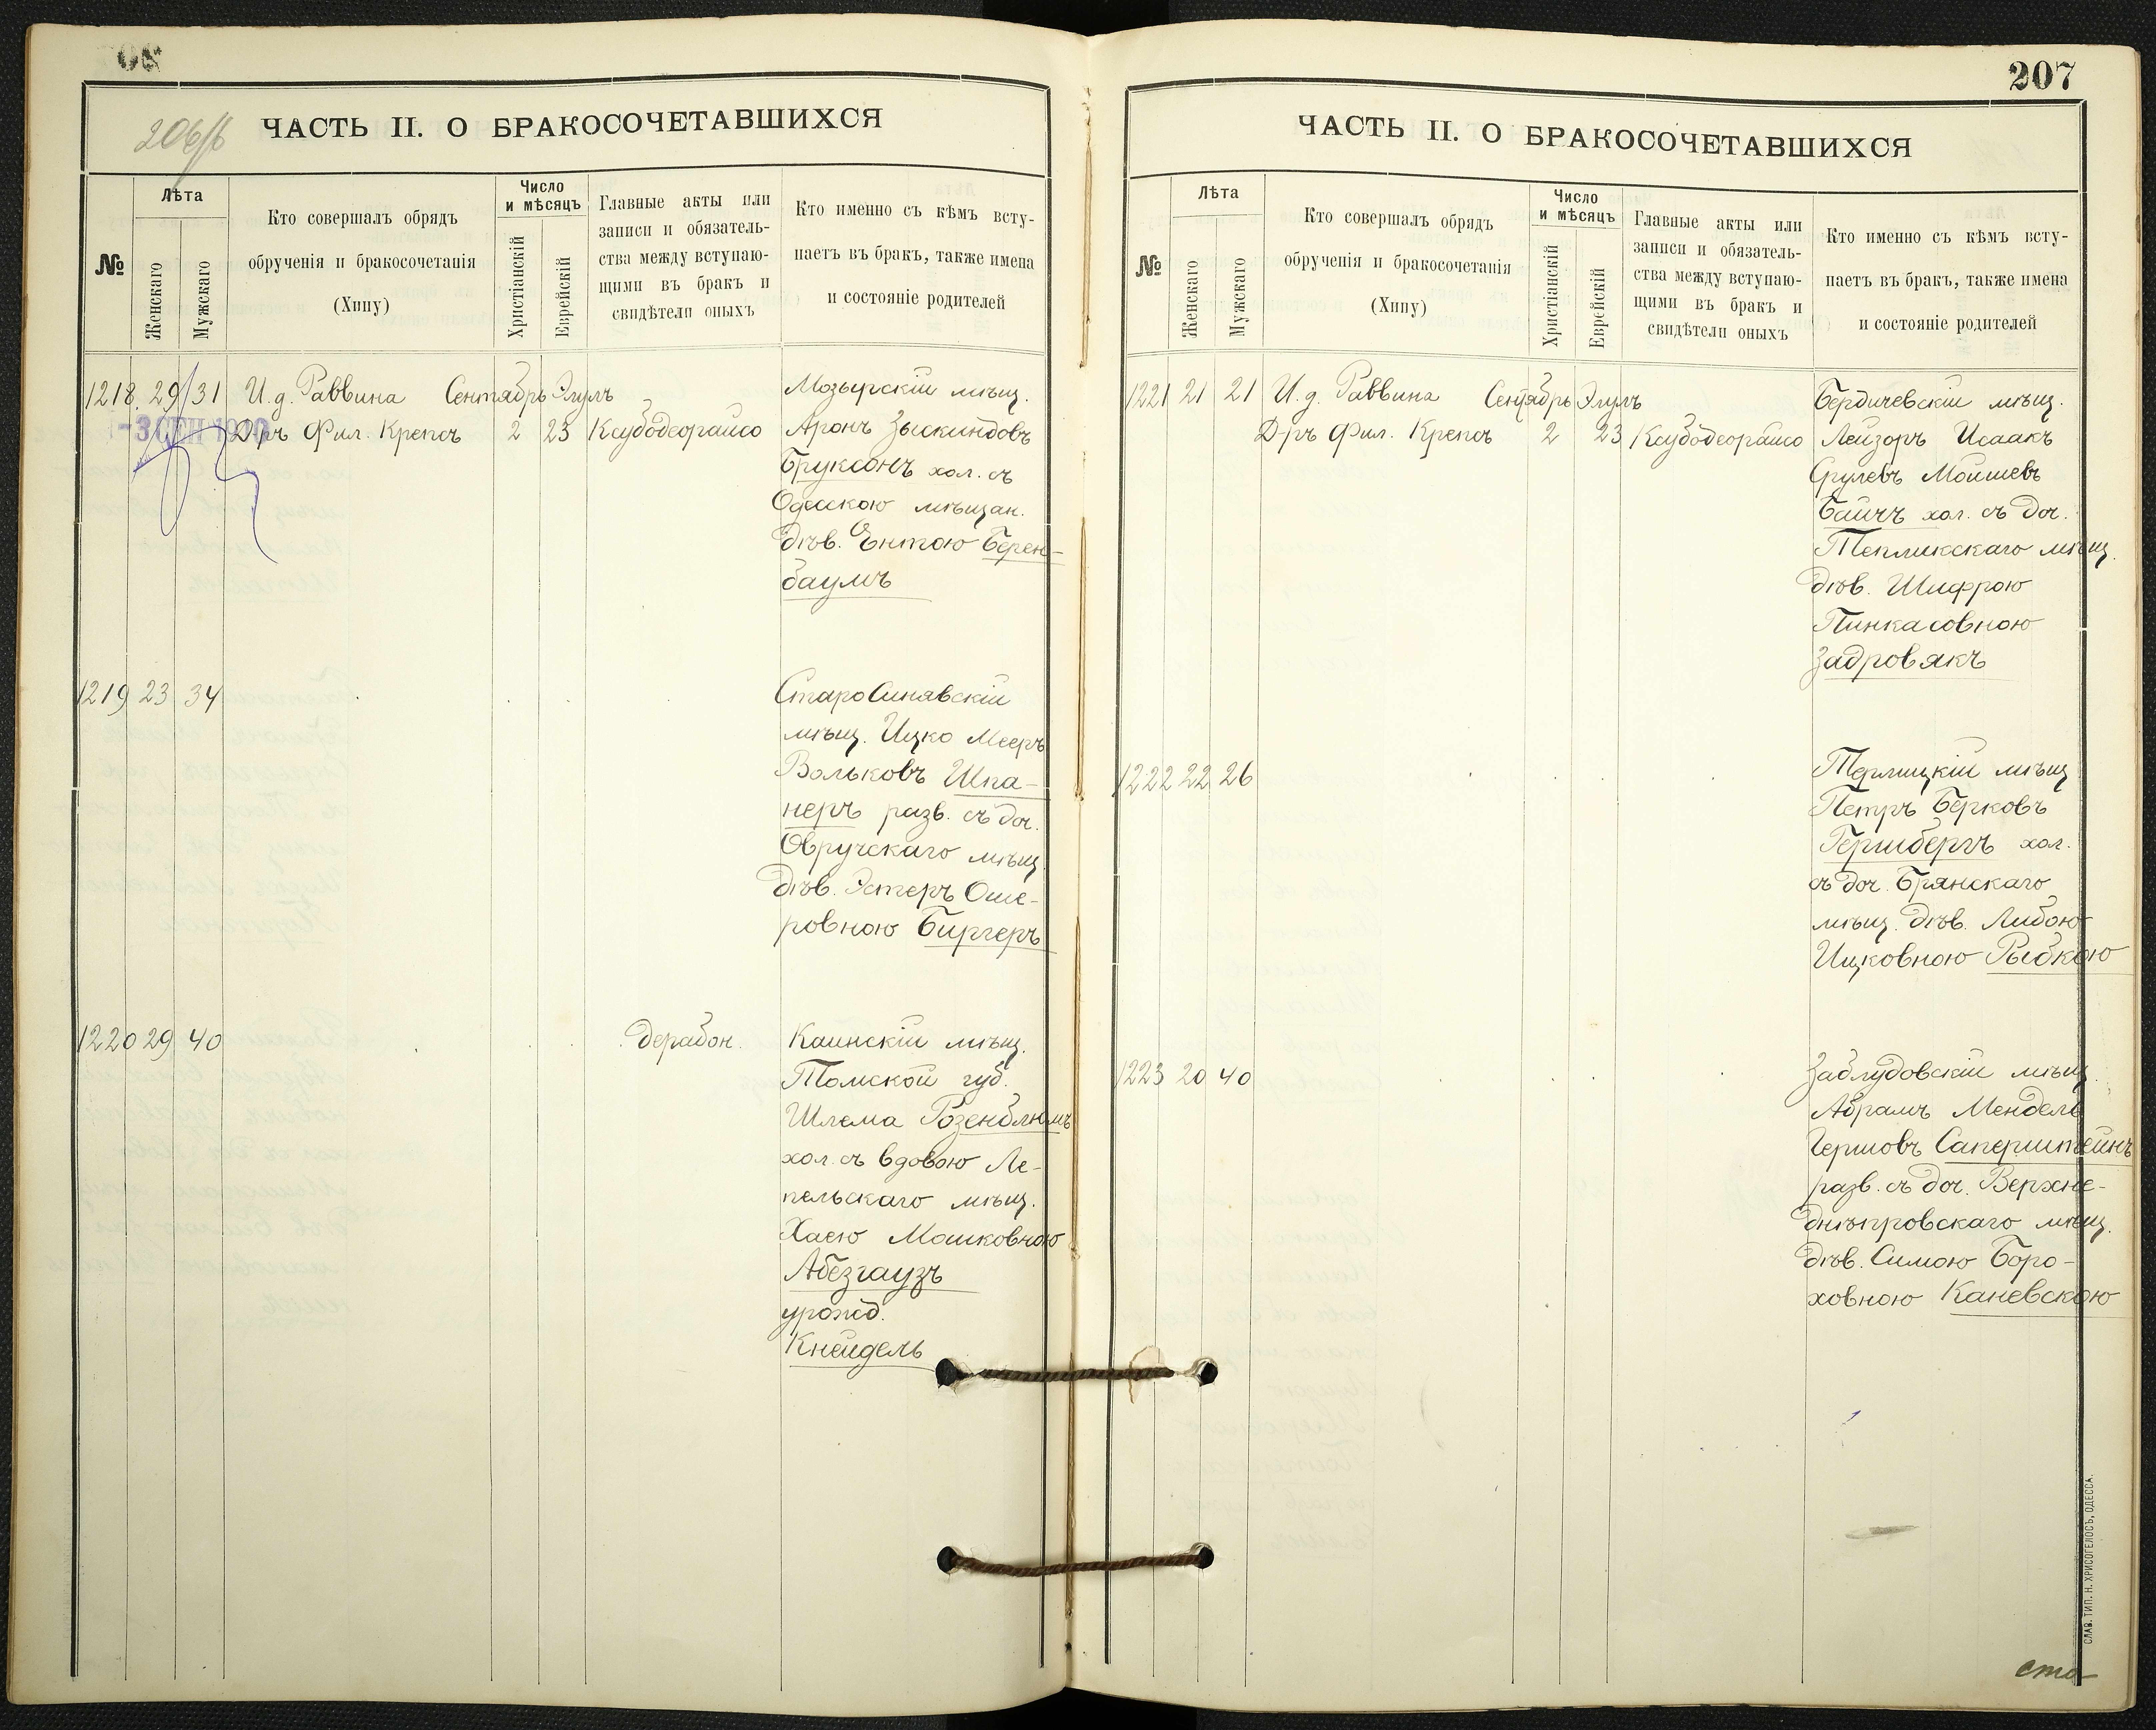 206/б
ЧАСТЬ II. О БРАКОСОЧЕТАВШИХСЯ
№
Лѣта
Женскаго
Мужскаго
Кто совершалъ обрядъ
обрученія и бракосочетанія
(Хипу)
Число
и мѣсяцъ
Христіанскій
Еврейскій
Главные акты или
записи и обязатель-
ства между вступаю-
щими въ бракъ и
свидѣтели оныхъ
Кто именно съ кѣмъ всту-
паетъ въ бракъ, также имена
и состояніе родителей
1218 29 31 И.д. Раввина Сентябрь Элулъ
-3 СЕН
Д-ръ Фил. Крепсъ 2 23 Ксубодеорайсо
Мозырскій мѣщ.
Аронъ Зыскиндовъ
Бруксонъ хол. съ
Одесскою мѣщан.
дѣв. Ентою Берен-
баумъ
1219 23 34
СтароСинявскій
мѣщ. Ицко Мееръ
Вольковъ Шпа-
неръ разв. съ доч.
Овручскаго мѣщ
дѣв. Эстеръ Оше-
ровною Биргеръ
1220 29 40
дерабон.
Каинскій мѣщ.
Томской губ.
Шлема Розенблюмъ
хол. съ вдовою Ле-
пельскаго мѣщ.
Хаею Мошковною
Абезгаузъ
урожд.
Кнейдель
207
ЧАСТЬ II. О БРАКОСОЧЕТАВШИХСЯ
№
Лѣта
Женскаго
Мужскаго
Кто совершалъ обрядъ
обрученія и бракосочетанія
(Хипу)
Число
и мѣсяцъ
Христіанскій
Еврейскій
Главные акты или
записи и обязатель-
ства между вступаю-
щими въ бракъ и
свидѣтели оныхъ
Кто именно съ кѣмъ всту-
паетъ въ бракъ, также имена
и состояніе родителей
1221 21 21 И.д. Раввина Сентябрь Элулъ
Д-ръ Фил. Крепсъ 2 23 Ксубодеорайсо
Бердичевскій мѣщ.
Лейзоръ Исаакъ
Срулевъ Мойшевъ
Байчъ хол. съ доч.
Тепликскаго мѣщ.
дѣв. Шифрою
Пинкасовною
Задровякъ
1222 22 26
Терлицкій мѣщ
Петръ Берковъ
Гершбергъ хол.
съ доч. Брянскаго
мѣщ. дѣв. Либою
Ицковною Рыбкою
1223 20 40
Заблудовскій мѣщ.
Абрамъ Мендель
Гершовъ Саперштейнъ
разв. съ доч. Верхне-
днѣпровскаго мѣщ.
дѣв. Симою Боро-
ховною Каневскою
СЛАВ. ТИП. Н. ХРИСОГЕЛОСЪ, ОДЕССА.